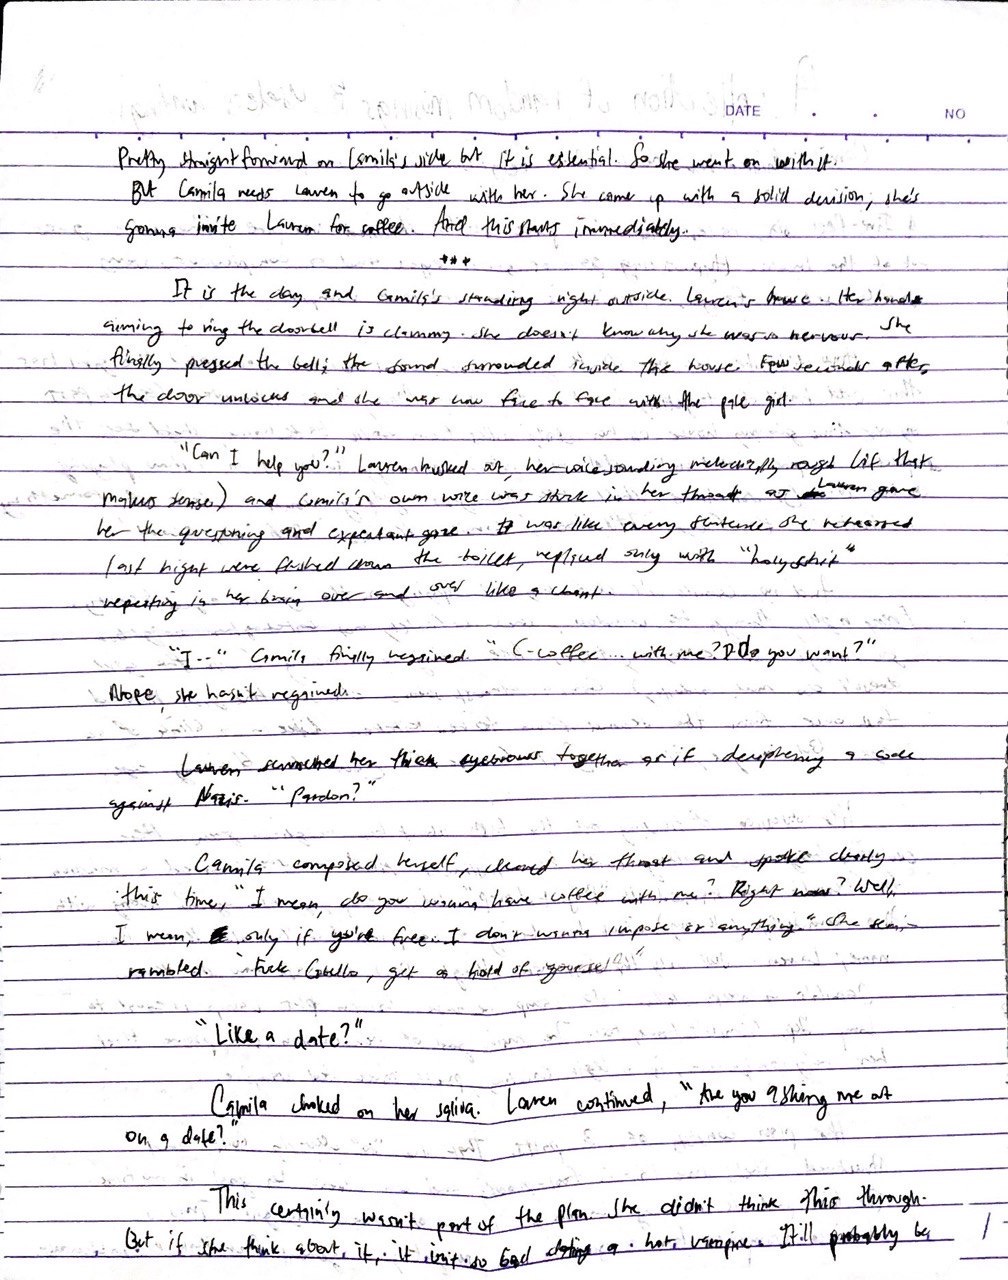 DATE . . . NO
Pretty straightforward on Camila's side but it is essential. So she went on with it.
But Camila needs Lauren to go outside with her. She came up with a solid decision, she's
gonna invite Lauren for coffee. And this starts immediately.
***
It is the day and Camila's standing right outside Lauren's house. Her hands
aiming to ring the doorbell is clammy. She doesn't know why she was so nervous. She
finally pressed the bell; the sound surrounded inside the house. Few seconds after,
the door unlocks and she was now face to face with the pale girl.
"Can I help you?" Lauren husked out, her voice sounding melodically rough (if that
makes sense) and Camila's own voice was stuck in her throat as Lauren gave
her the questioning and expectant gaze. It was like every sentence she rehearsed
last night were flushed down the toilet, replaced only with "holy shit"
repeating in her brain over and over like a chant.
"I--" Camila finally regained. "C-coffee... with me? D-Do you want?"
Nope, she hasn't regained.
Lauren scrunched her thick eyebrows together as if deciphering a code
against Nazis. "Pardon?"
Camila composed herself, cleared her throat and spoke clearly
this time, "I mean, do you wanna have coffee with me? Right now? Well,
I mean, only if you're free. I don't wanna impose or anything." She semi-
rambled. "Fuck Cabello, get a hold of yourself"
"Like a date?"
Camila choked on her saliva. Lauren continued, "Are you asking me out
on a date?"
This certainly wasn't part of the plan. She didn't think this through.
But if she think about it, it isn't so bad dating a hot vampire. It'll probably be
1